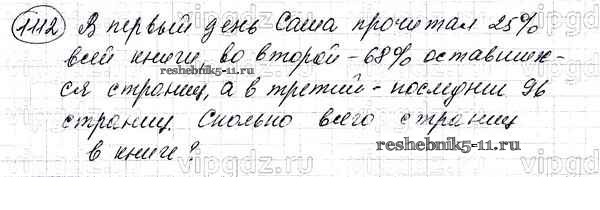 1112 В первый день Саша прочитал 25%
всей книги, во второй - 68% оставших-
reshebnik5-11.ru
ся страниц, а в третий - последнии 96
страниц. Сколько всего страниц
reshebnik5-11.ru
в книге?
vipgdz.ru